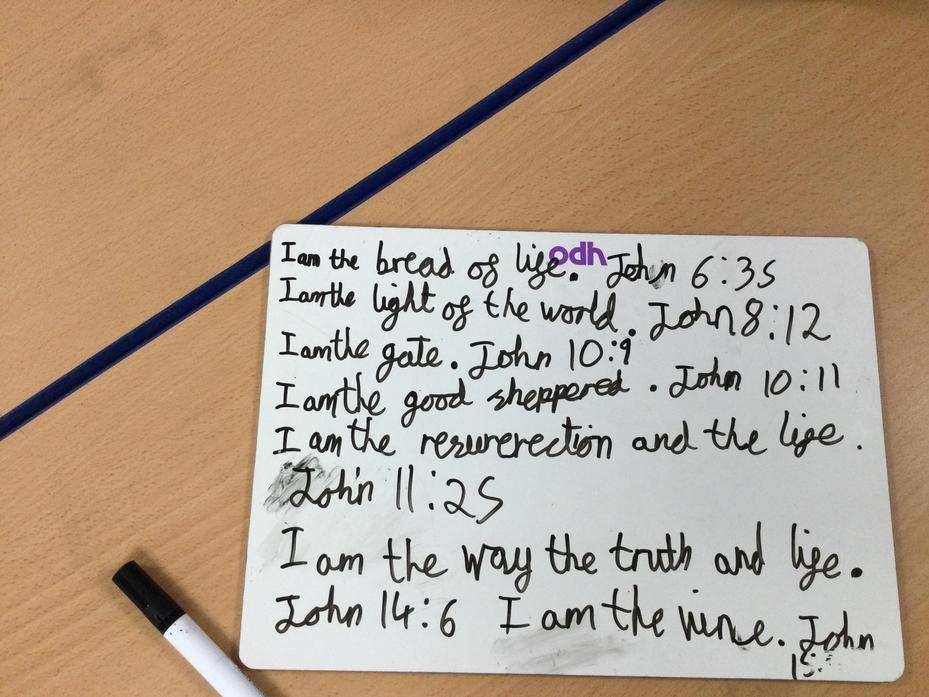 I am the bread of life. John 6:35
odh
I am the light of the world. John 8:12
I am the gate. John 10:9
I am the good sheppered. John 10:11
I am the resurerection and the life.
John 11:25
I am the way the truth and life.
John 14:6 I am the vine. John
15: